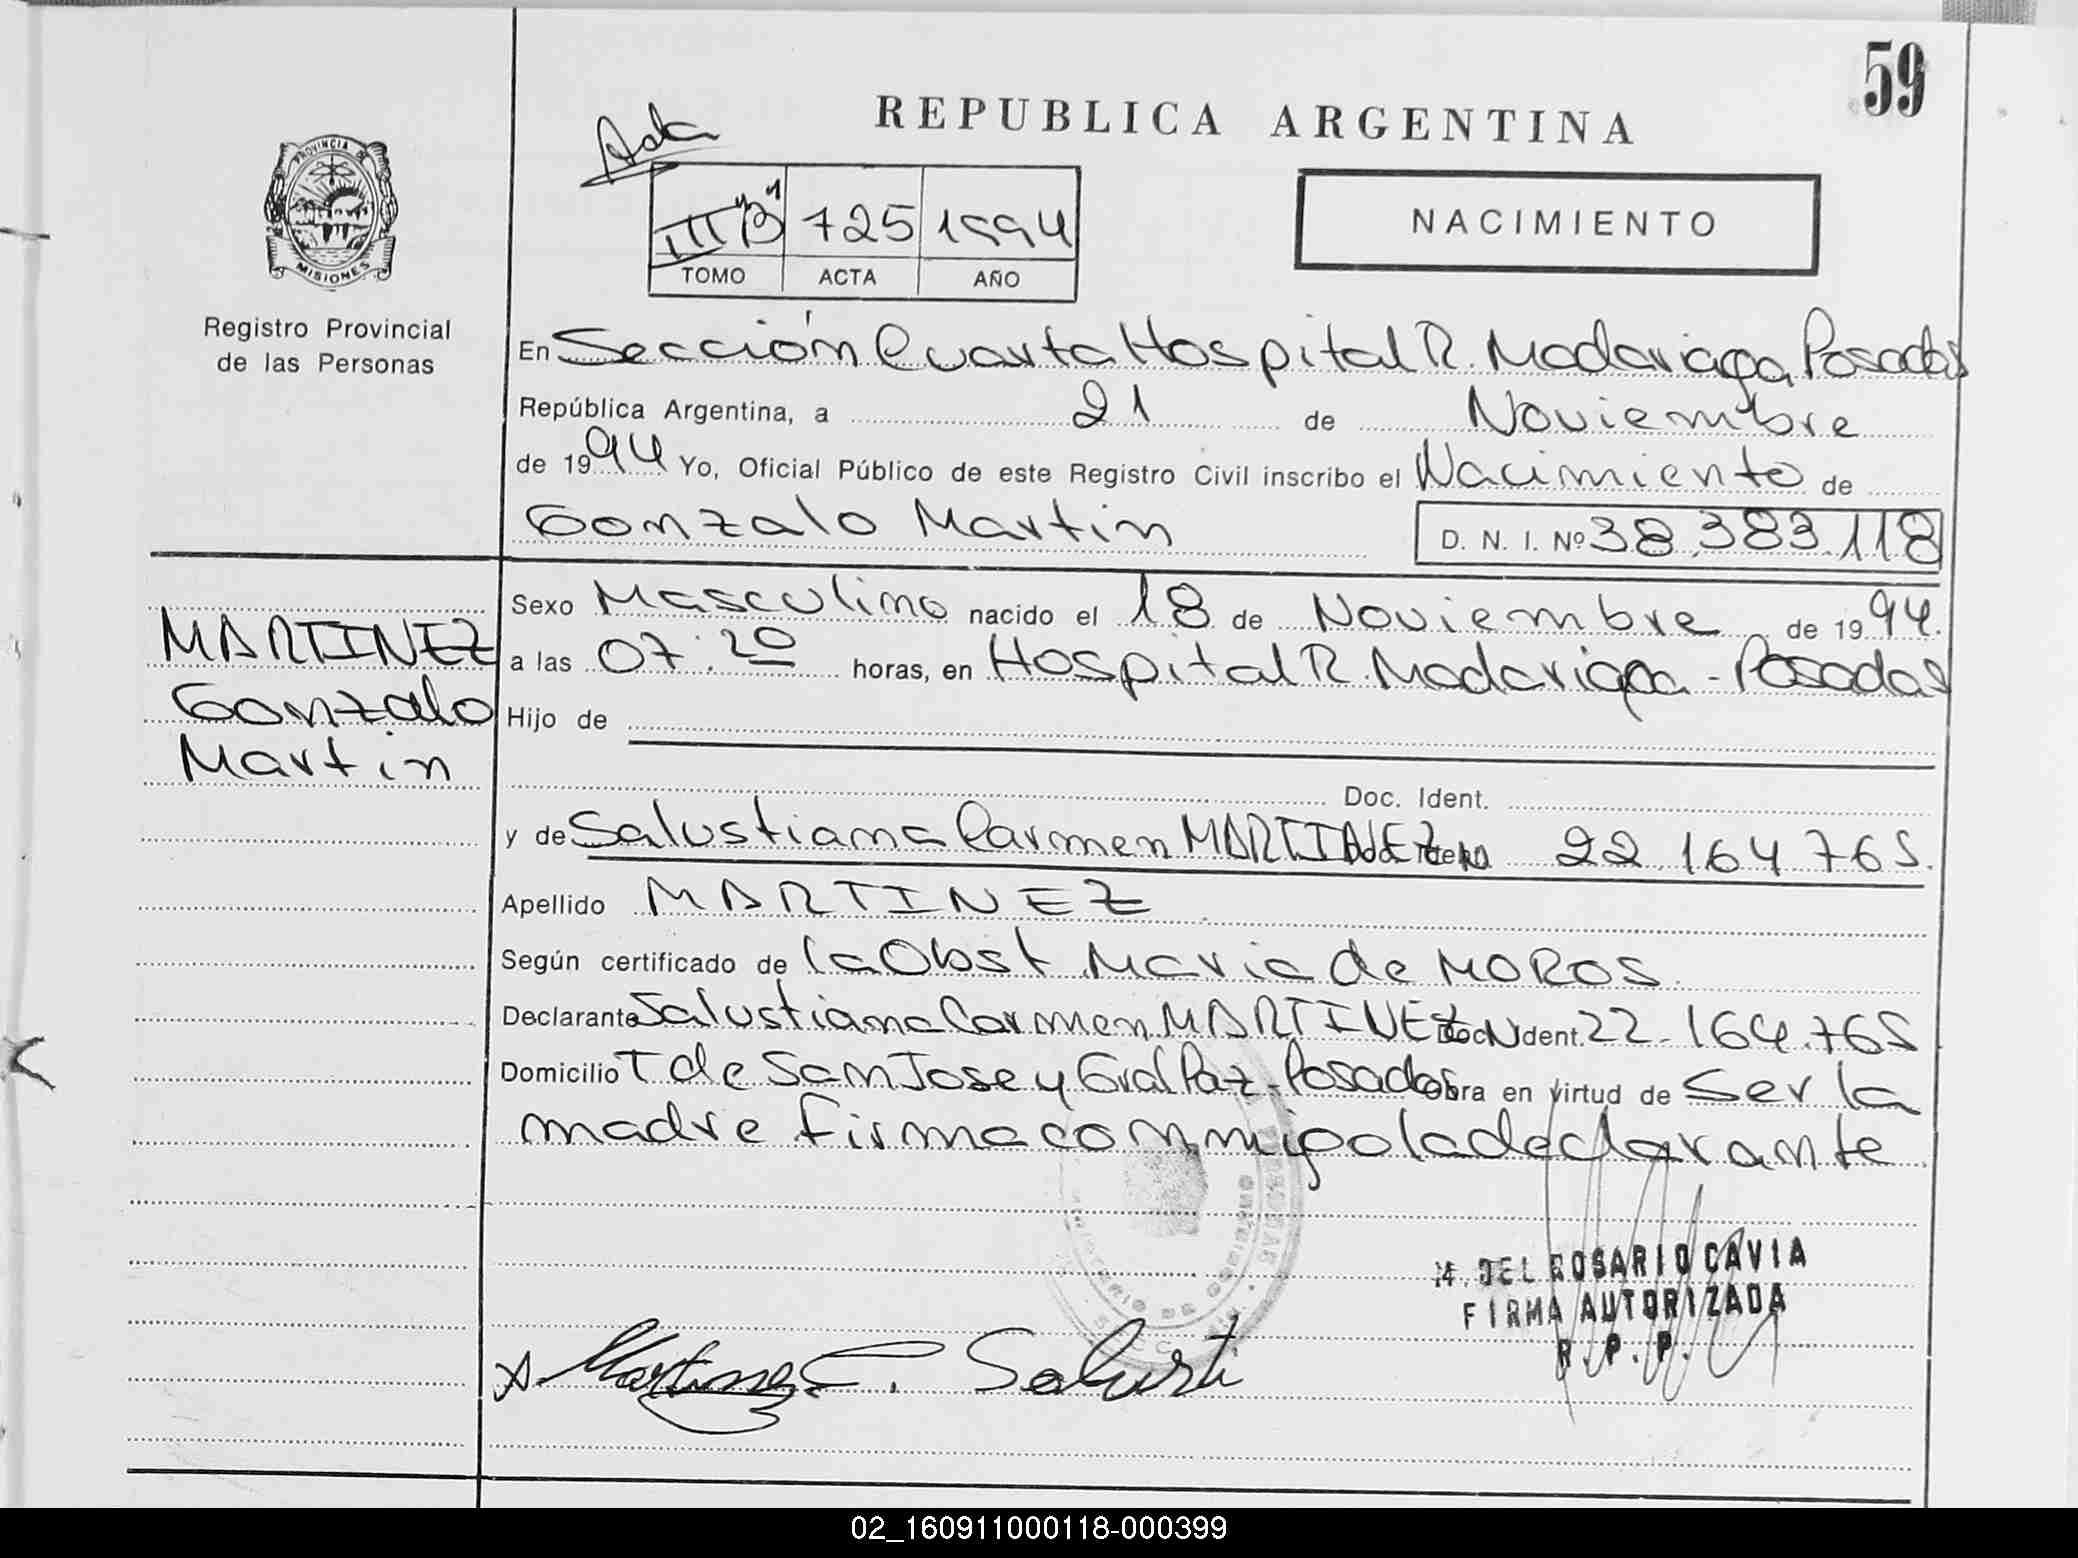 59
REPUBLICA ARGENTINA
Acta
PROVINCIA DE
MISIONES
III "B" 725 1994
TOMO ACTA AÑO
NACIMIENTO
Registro Provincial
de las Personas
En Sección Cuarta Hospital R. Madariaga Posadas
República Argentina, a 21 de Noviembre
de 1994 Yo, Oficial Público de este Registro Civil inscribo el Nacimiento de
Gonzalo Martin D. N. I. Nº 38.383.118
MARTINEZ
Gonzalo
Martin
Sexo Masculino nacido el 18 de Noviembre de 1994.
a las 07:20 horas, en Hospital R. Madariaga - Posadas
Hijo de
Doc. Ident.
y de Salustiana Carmen MARTINEZ 22.164.765.
Apellido MARTINEZ
Según certificado de la Obst Maria de MOROS.
Declarante Salustiana Carmen MARTINEZ Doc. Ident. 22.164.765
Domicilio T de San Jose y Gral Paz - Posadas Obra en virtud de Ser la
madre firma conmigo la declarante
M. DEL ROSARIO CAVIA
FIRMA AUTORIZADA
R. P. P.
Martinez C. Salusti
02_160911000118-000399